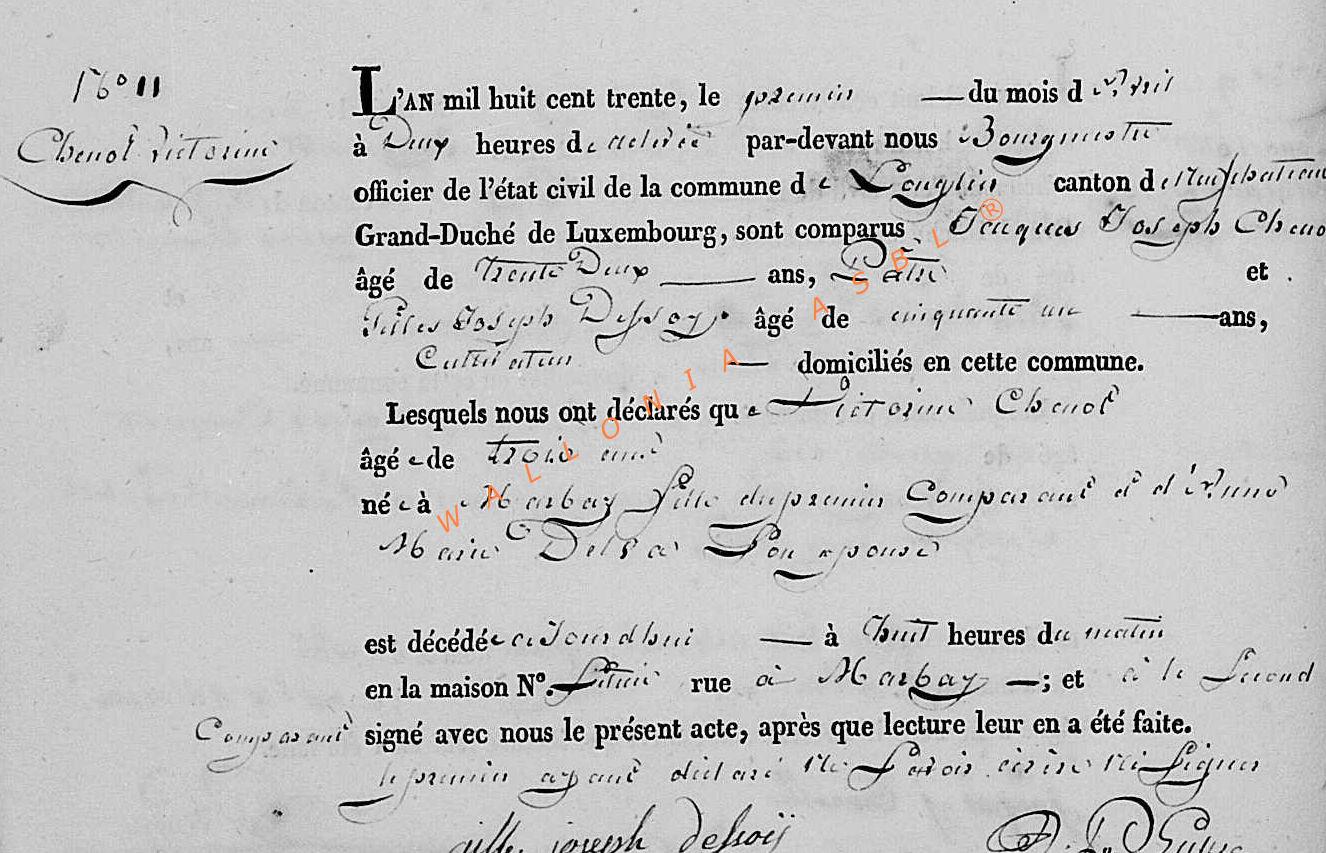 N° 11
Chenot Victorine
L'AN mil huit cent trente, le premier — du mois d'Avril
à Deux heures de relevée par-devant nous Bourgmestre
officier de l'état civil de la commune de Longlier canton de Neufchateau
Grand-Duché de Luxembourg, sont comparus Jacques Joseph Cheno
âgé de trente Deux — ans, Patre et
Gilles Joseph Dessoy âgé de cinquante un — ans,
Cultivateur — domiciliés en cette commune.
Lesquels nous ont déclarés que Victorine Chenot
âgée de trois ans
née à Marbay fille du premier Comparant et d'Anne
Marie Son epouse
est décédée aujourdhui — à huit heures du matin
en la maison N°. Située rue à Marbay —; et a le Second
Comparant signé avec nous le présent acte, après que lecture leur en a été faite.
le premier ayant déclaré Ne Savoir écrire Ni Signer
gille joseph dessoÿ
WALLONIA ASBL ®